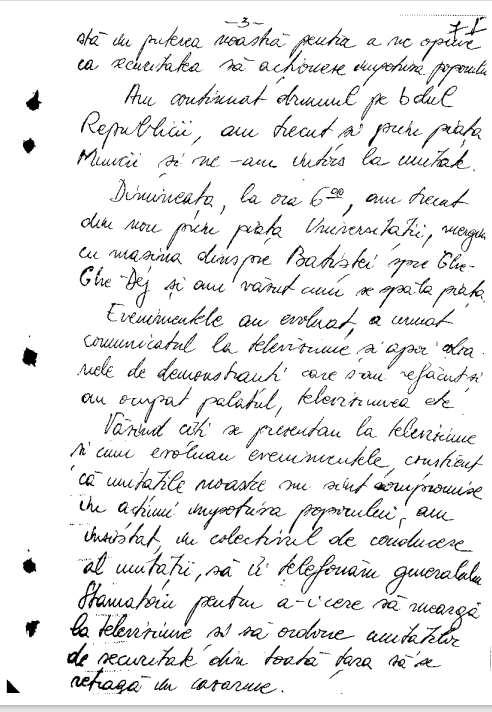 -3-
stă în puterea noastră pentru a ne opune
ca securitatea să acționeze împotriva poporului
Am continuat drumul pe bdul
Republicii, am trecut și prin piața
Muncii și ne-am întors la unitate.
Dimineața, la ora 6⁰⁰, am trecut
din nou prin piața Universității, mergând
cu mașina dinspre Batiștei spre Ghe-
Ghe-Dej și am văzut cum se spăla piața.
Evenimentele au evoluat, a urmat
comunicatul la televiziune și apoi coloa-
nele de demonstranți care s-au refăcut și
au ocupat palatul, televiziunea etc
Văzînd cîți se prezentau la televiziune
și cum evoluau evenimentele, conștient
că unitățile noastre nu sînt compromise
în acțiuni împotriva poporului, am
insistat, în colectivul de conducere
al unității, să îi telefonăm generalului
Stamatoiu pentru a-i cere să meargă
la televiziune și să ordone unităților
de securitate din toată țara să se
retragă în cazarme.